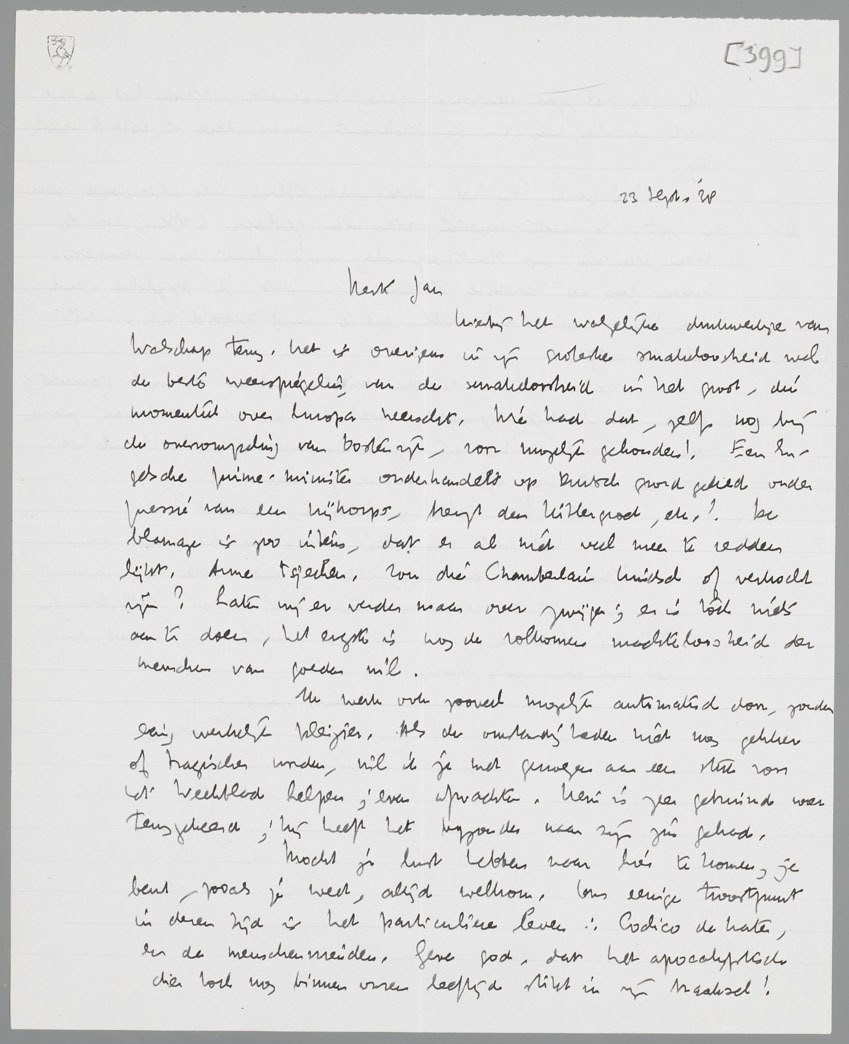 [399]
23 Sept. '38
Beste Jan
Hierbij het walgelijke drukwerkje van
Walschap terug. Het is overigens in zijn groteske smakeloosheid wel
de beste weerspiegeling van de smakeloosheid in het groot, die
momenteel over Europa heerscht. Wie had dat, zelfs nog bij
de overrompeling van Oostenrijk, voor mogelijk gehouden! Een En-
gelsche prime-minister onderhandelt op Duitsch grondgebied onder
pressie van een vrijkorps, brengt den Hitlergroet, etc.! De
blamage is zoo intens, dat er al niet veel meer te redden
lijkt. Arme Tsjechen. Zou die Chamberlain kindsch of verkocht
zijn? Laten wij er verder maar over zwijgen; er is toch niets
aan te doen, het ergste is nog de volkomen machteloosheid der
menschen van goeden wil.
Ik werk ook zooveel mogelijk automatisch door, zonder
eenig werkelijk plezier. Als de omstandigheden niet nog gekker
of tragischer worden, wil ik je met genoegen aan een stuk voor
het Weekblad helpen; even afwachten. Henri is zeer gebruind weer
teruggekeerd; hij heeft het bijzonder naar zijn zin gehad.
Mocht je lust hebben naar hier te komen, je
bent, zooals je weet, altijd welkom. Ons eenige troostpunt
in dezen tijd is het particuliere leven :. Codico de kater,
en de menschenmeiden. Geve god, dat het apocalyptische
dier toch nog binnen onzen leeftijd stikt in zijn braaksel!